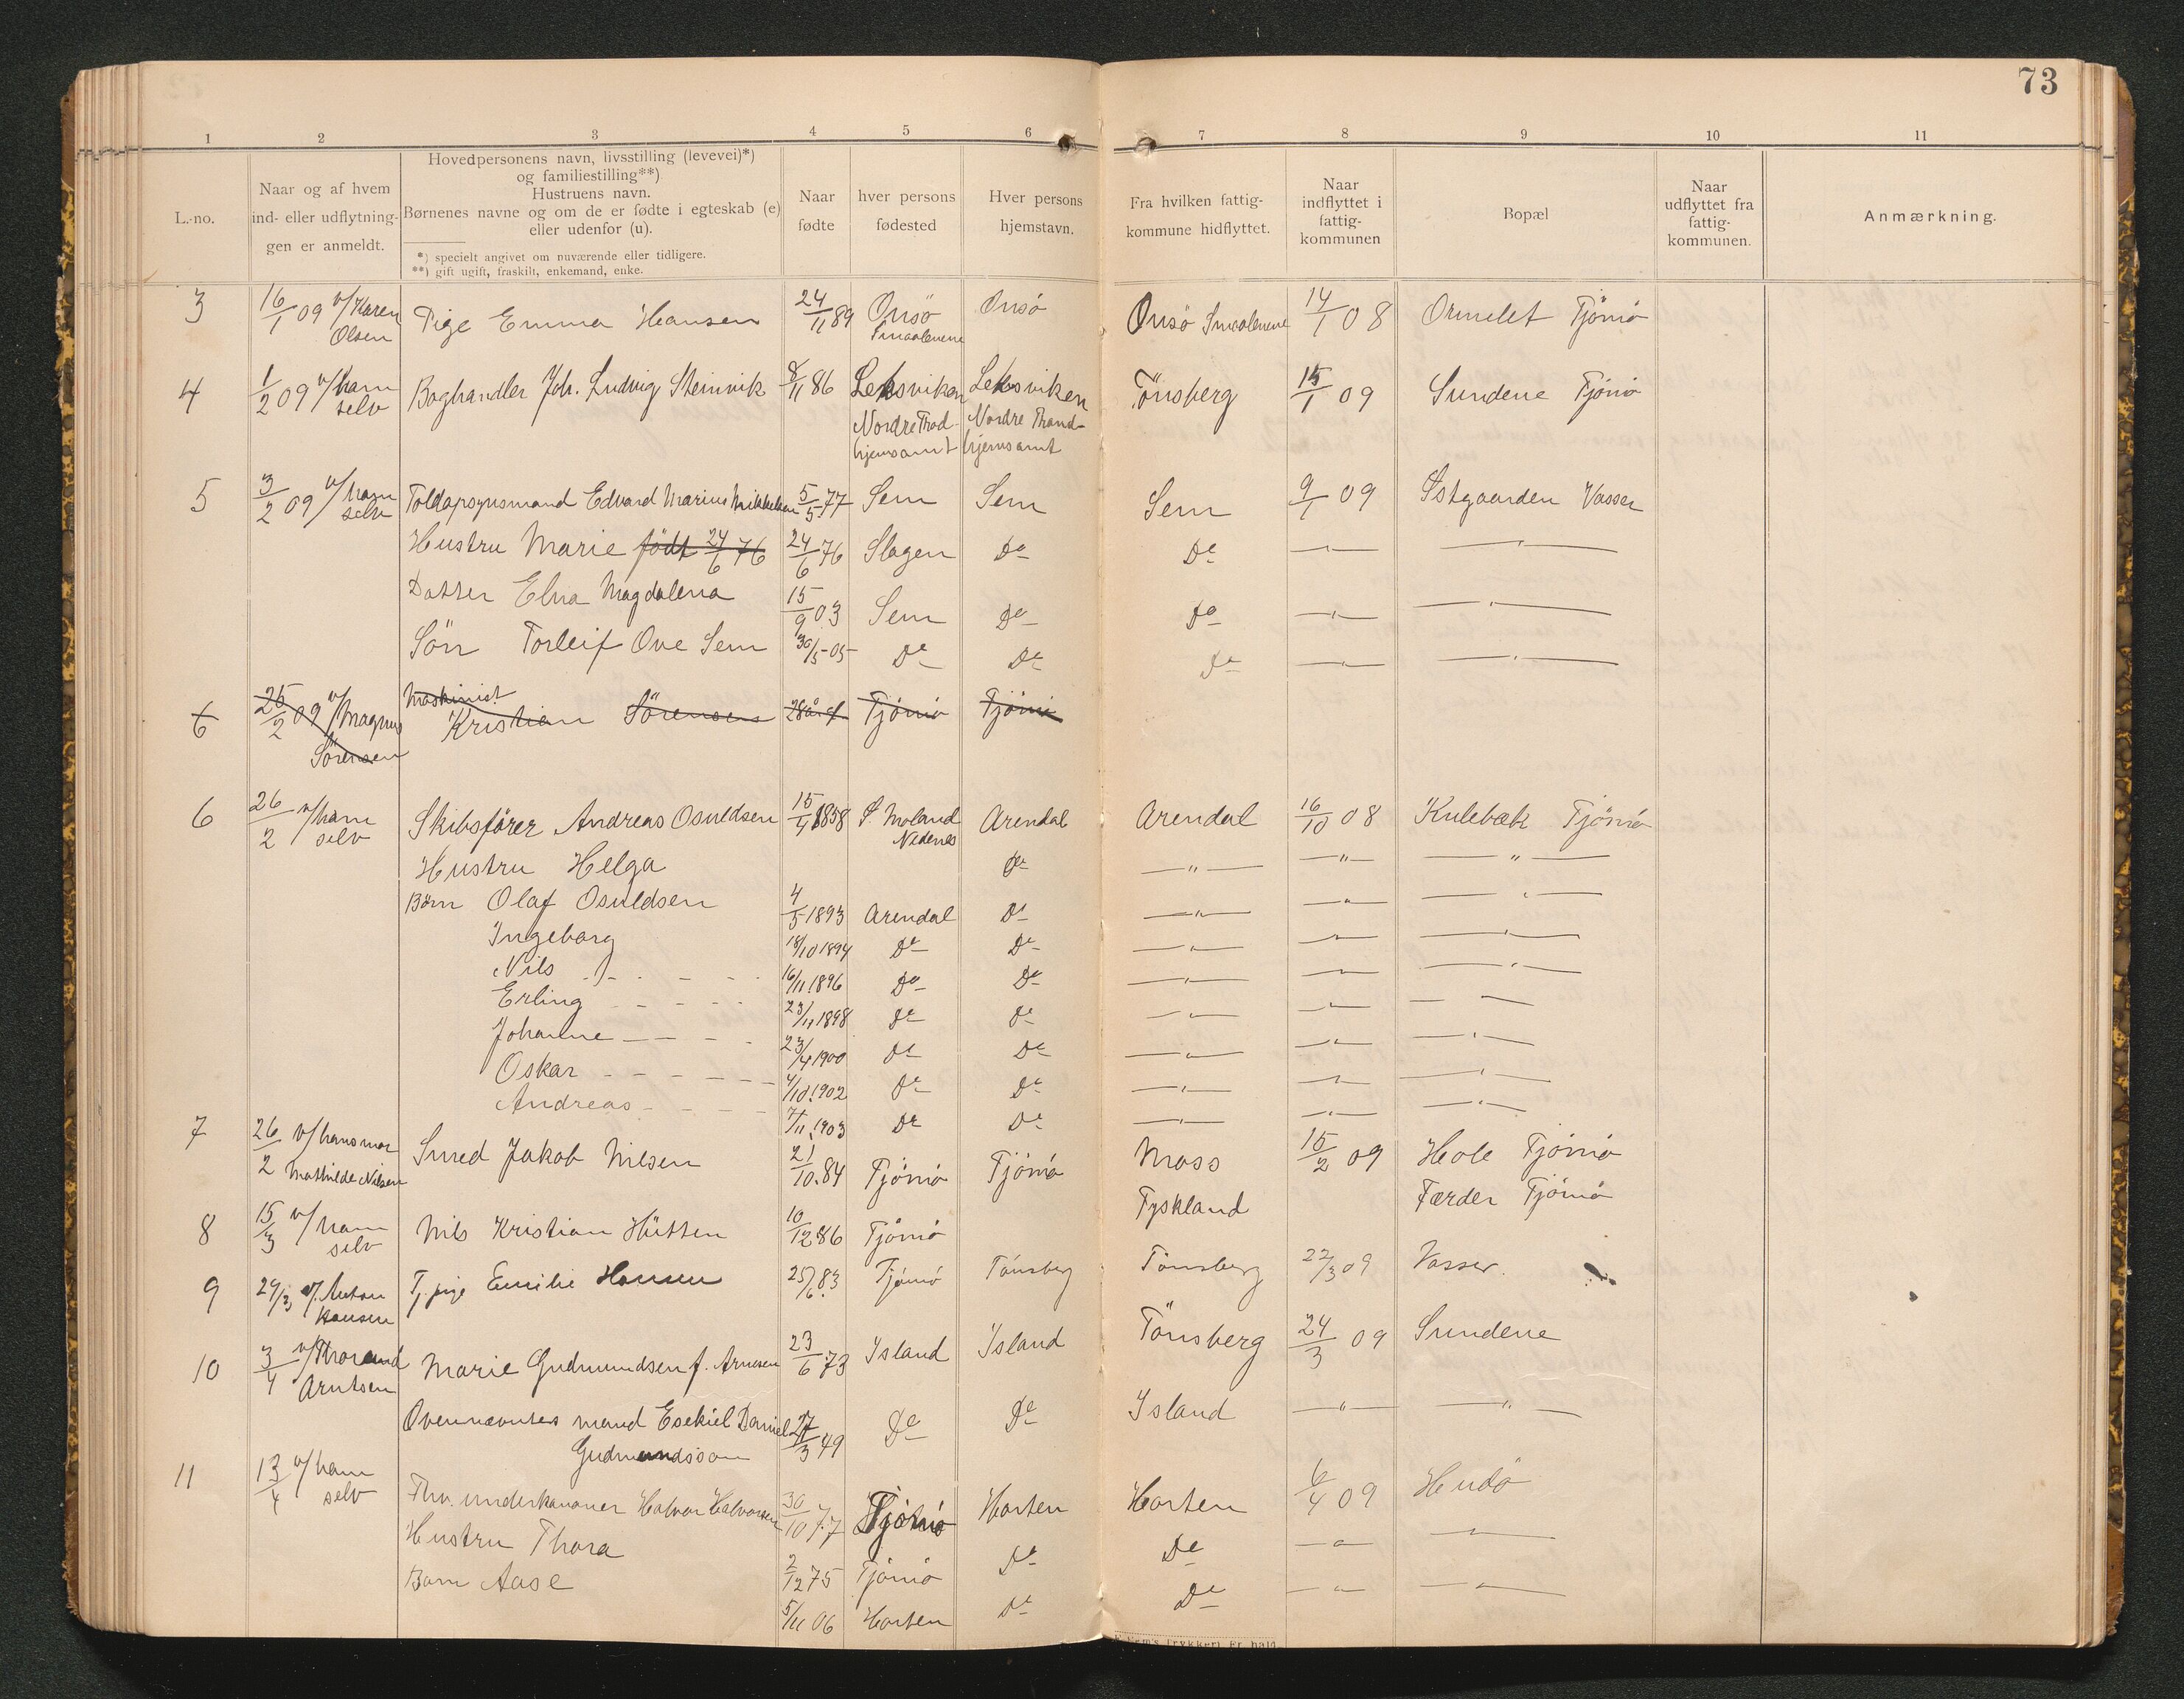 73
1 2 3 4 5 6 7 8 9 10 11
L.-no.
Naar og af hvem
ind- eller udflytnin-
gen er anmeldt.
Hovedpersonens navn, livsstilling (levevei)*)
og familiestilling**)
Hustruens navn.
Børnenes navne og om de er fødte i egteskab (e)
eller udenfor (u).
*) specielt angivet om nuværende eller tidligere.
**) gift ugift, fraskilt, enkemand, enke.
Naar
fødte
hver persons
fødested
Hver persons
hjemstavn.
Fra hvilken fattig-
kommune hidflyttet.
Naar
indflyttet i
fattig-
kommunen
Bopæl
Naar
udflyttet fra
fattig-
kommunen.
Anmærkning.
3 16/1 09 v/ Karen Olsen Pige Emma Hansen 24/11 89 Onsö Smaalenene Onsö Onsö Smaalenene 14/1 08 Ormelet Tjömö
4 1/2 09 v/ ham selv Boghandler Joh. Ludvig Steinvik 8/11 86 Leksviken Nordre Trod-hjemsamt Leksviken Nordre Thrond-hjemsamt Tönsberg 15/1 09 Sundene Tjömö
5 3/2 09 v/ ham selv Toldopsynsmand Edvard Marius Mikkelsen 5/5 77 Sem Sem Sem 9/1 09 Østgaarden Vasser
Hustru Marie födt 24/6 76 24/6 76 Slagen Do Do — " — — " —
Datter Elna Magdalena 15/9 03 Sem Do Do — " — — " —
Sön Torleif Ove Sem 30/5-05 Do Do Do — " — — " —
6 25/2 09 v/ Magnus Sörensen Maskinist Kristian Sörensen 28 år gl Tjömö Tjömö
6 26/2 v/ ham selv Skibsfører Andreas Osuldsen 15/4 1858 Ø. Moland Nedenes Arendal Arendal 16/10 08 Kulebæk Tjömö
Hustru Helga Do — " — — " — — " —
Börn Olaf Osuldsen 4/5 1893 Arendal Do — " — — " — — " —
Ingeborg 18/10 1894 Do Do — " — — " — — " —
Nils 16/11 1896 Do Do — " — — " — — " —
Erling 23/11 1898 Do Do — " — — " — — —
Johanne 23/4 1900 Do Do — " — — " — — " —
Oskar 4/10 1902 Do Do — " — — " — — " —
Andreas 7/11 1903 Do Do — " — — " — — " —
7 26/2 v/ hans mor Mathilde Nilsen Smed Jakob Nilsen 21/10. 84 Tjömö Tjömö Moss 15/2 09 Hole Tjömö
8 15/3 v/ ham selv Nils Kristian Hütten 10/12 86 Tjömö Tyskland Færder Tjömö
9 24/3 v/. Anton Hansen Tj. pige Emilie Hansen 25/6. 83 Tjömö Tönsberg Tönsberg 22/3 09 Vasser.
10 3/4 v/ Arntsen Marie Gudmundsen f. Arnesen 23/6 73 Island Island Tönsberg 24/3 09 Sundene
Ovennævntes mand Esekiel Daniel Gudmundsson 27/3 49 Do Do Island — " — — " —
11 13/4 v/ ham selv Fhv. underkanoner Halvor Halvorsen 30/10 77 Tjömö Horten Horten 6/4 09 Hudö
Hustru Thora 2/12 75 Tjömö Do Do — " — — " —
Barn Aase 5/11 06 Horten Do Do — " — — " —